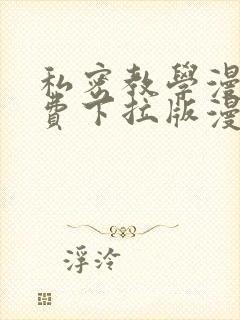 私密教學漫
費下拉版漫
浮泠